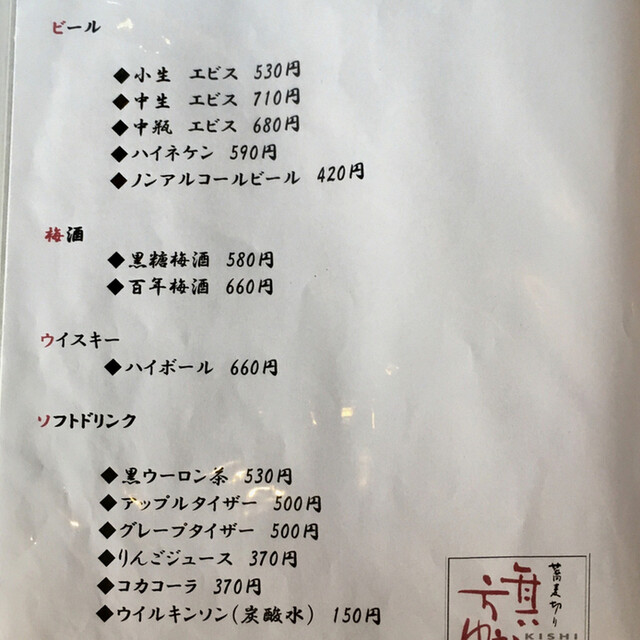 ビール
◆小生 エビス 530円
◆中生 エビス 710円
◆中瓶 エビス 680円
◆ハイネケン 590円
◆ノンアルコールビール 420円
梅酒
◆黒糖梅酒 580円
◆百年梅酒 660円
ウイスキー
◆ハイボール 660円
ソフトドリンク
◆黒ウーロン茶 530円
◆アップルタイザー 500円
◆グレープタイザー 500円
◆りんごジュース 370円
◆コカコーラ 370円
◆ウイルキンソン(炭酸水) 150円
蕎麦切り
KISHI